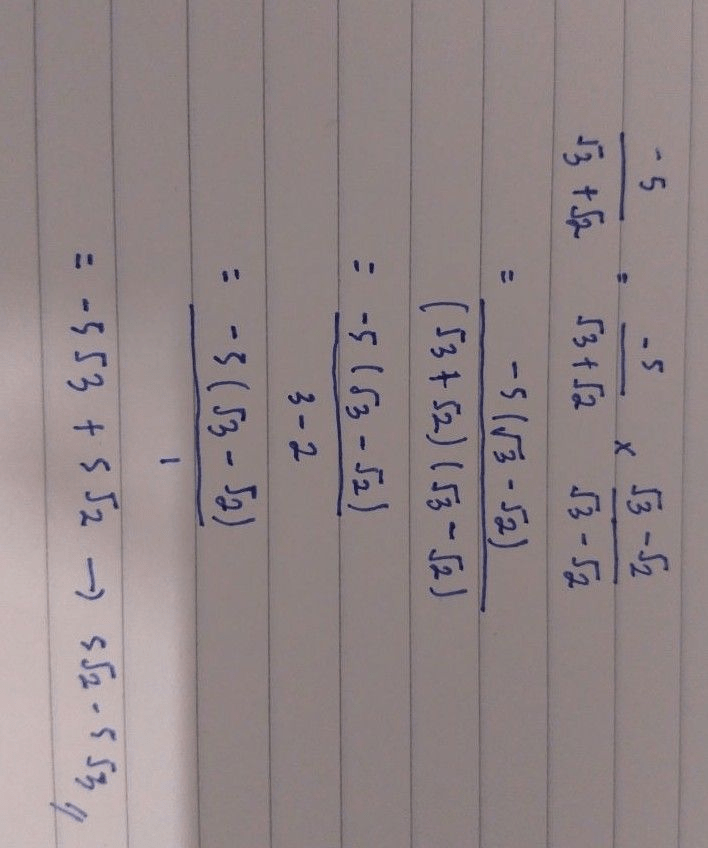 -5/(√3 + √2) = -5/(√3 + √2) × (√3 - √2)/(√3 - √2)
= -5(√3 - √2)/((√3 + √2)(√3 - √2))
= -5(√3 - √2)/(3 - 2)
= -5(√3 - √2)/1
= -5√3 + 5√2 → 5√2 - 5√3 //